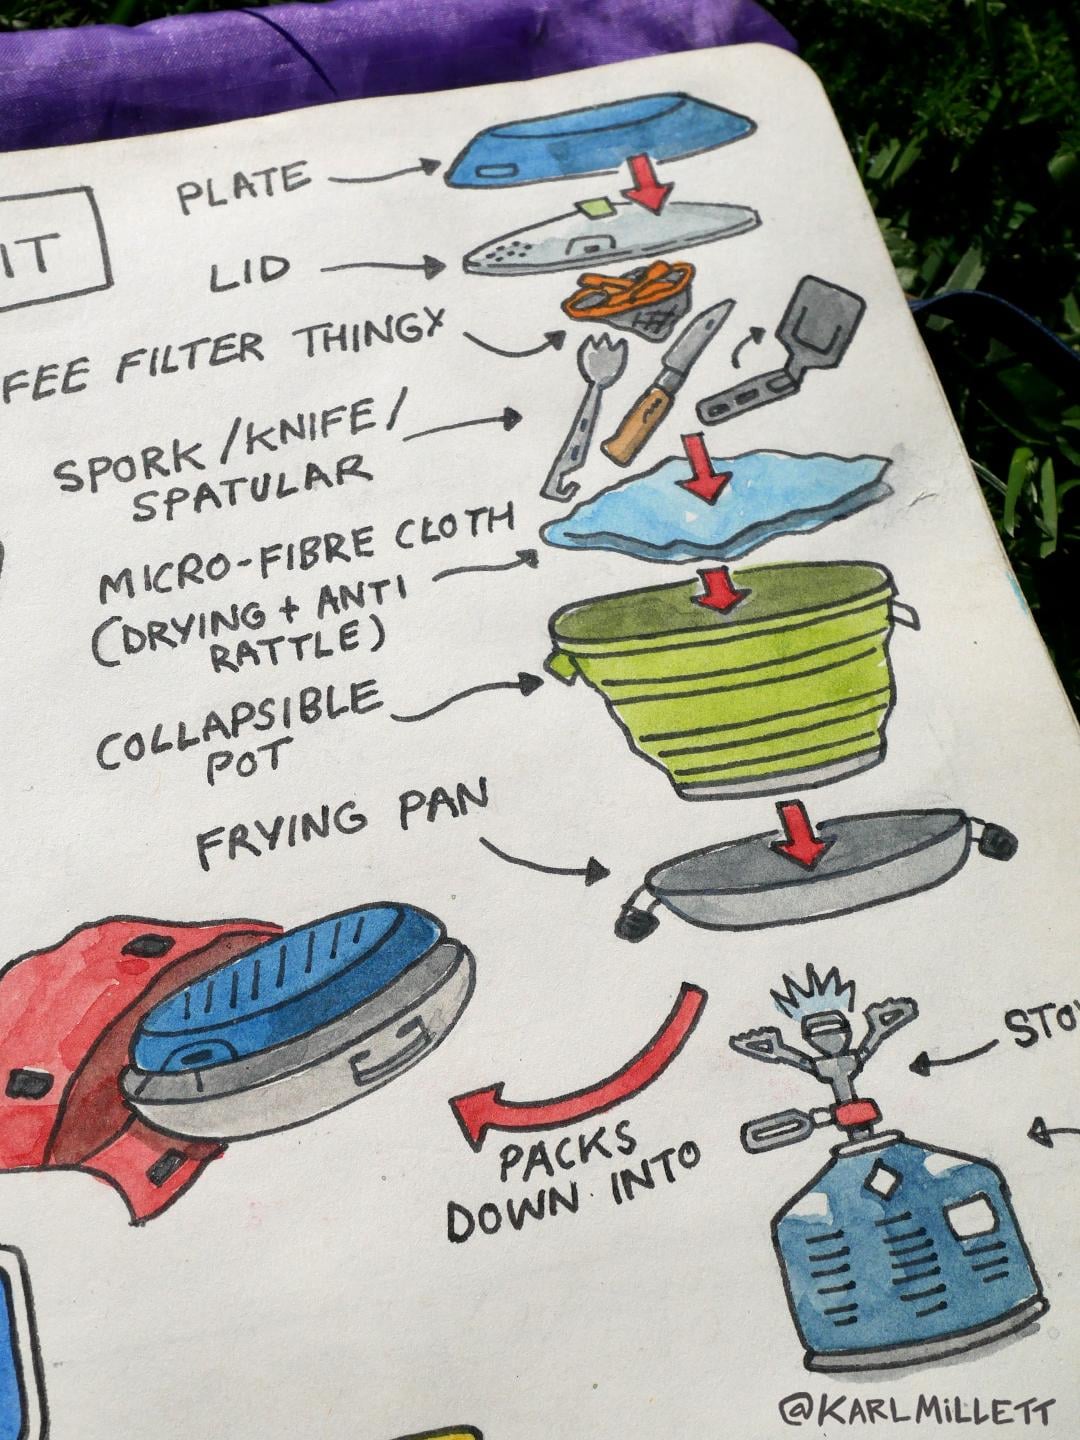 PLATE
IT
LID
FEE FILTER THINGY
SPORK/KNIFE/
SPATULAR
MICRO-FIBRE CLOTH
(DRYING + ANTI
RATTLE)
COLLAPSIBLE
POT
FRYING PAN
STO
PACKS
DOWN INTO
@KARLMILLETT